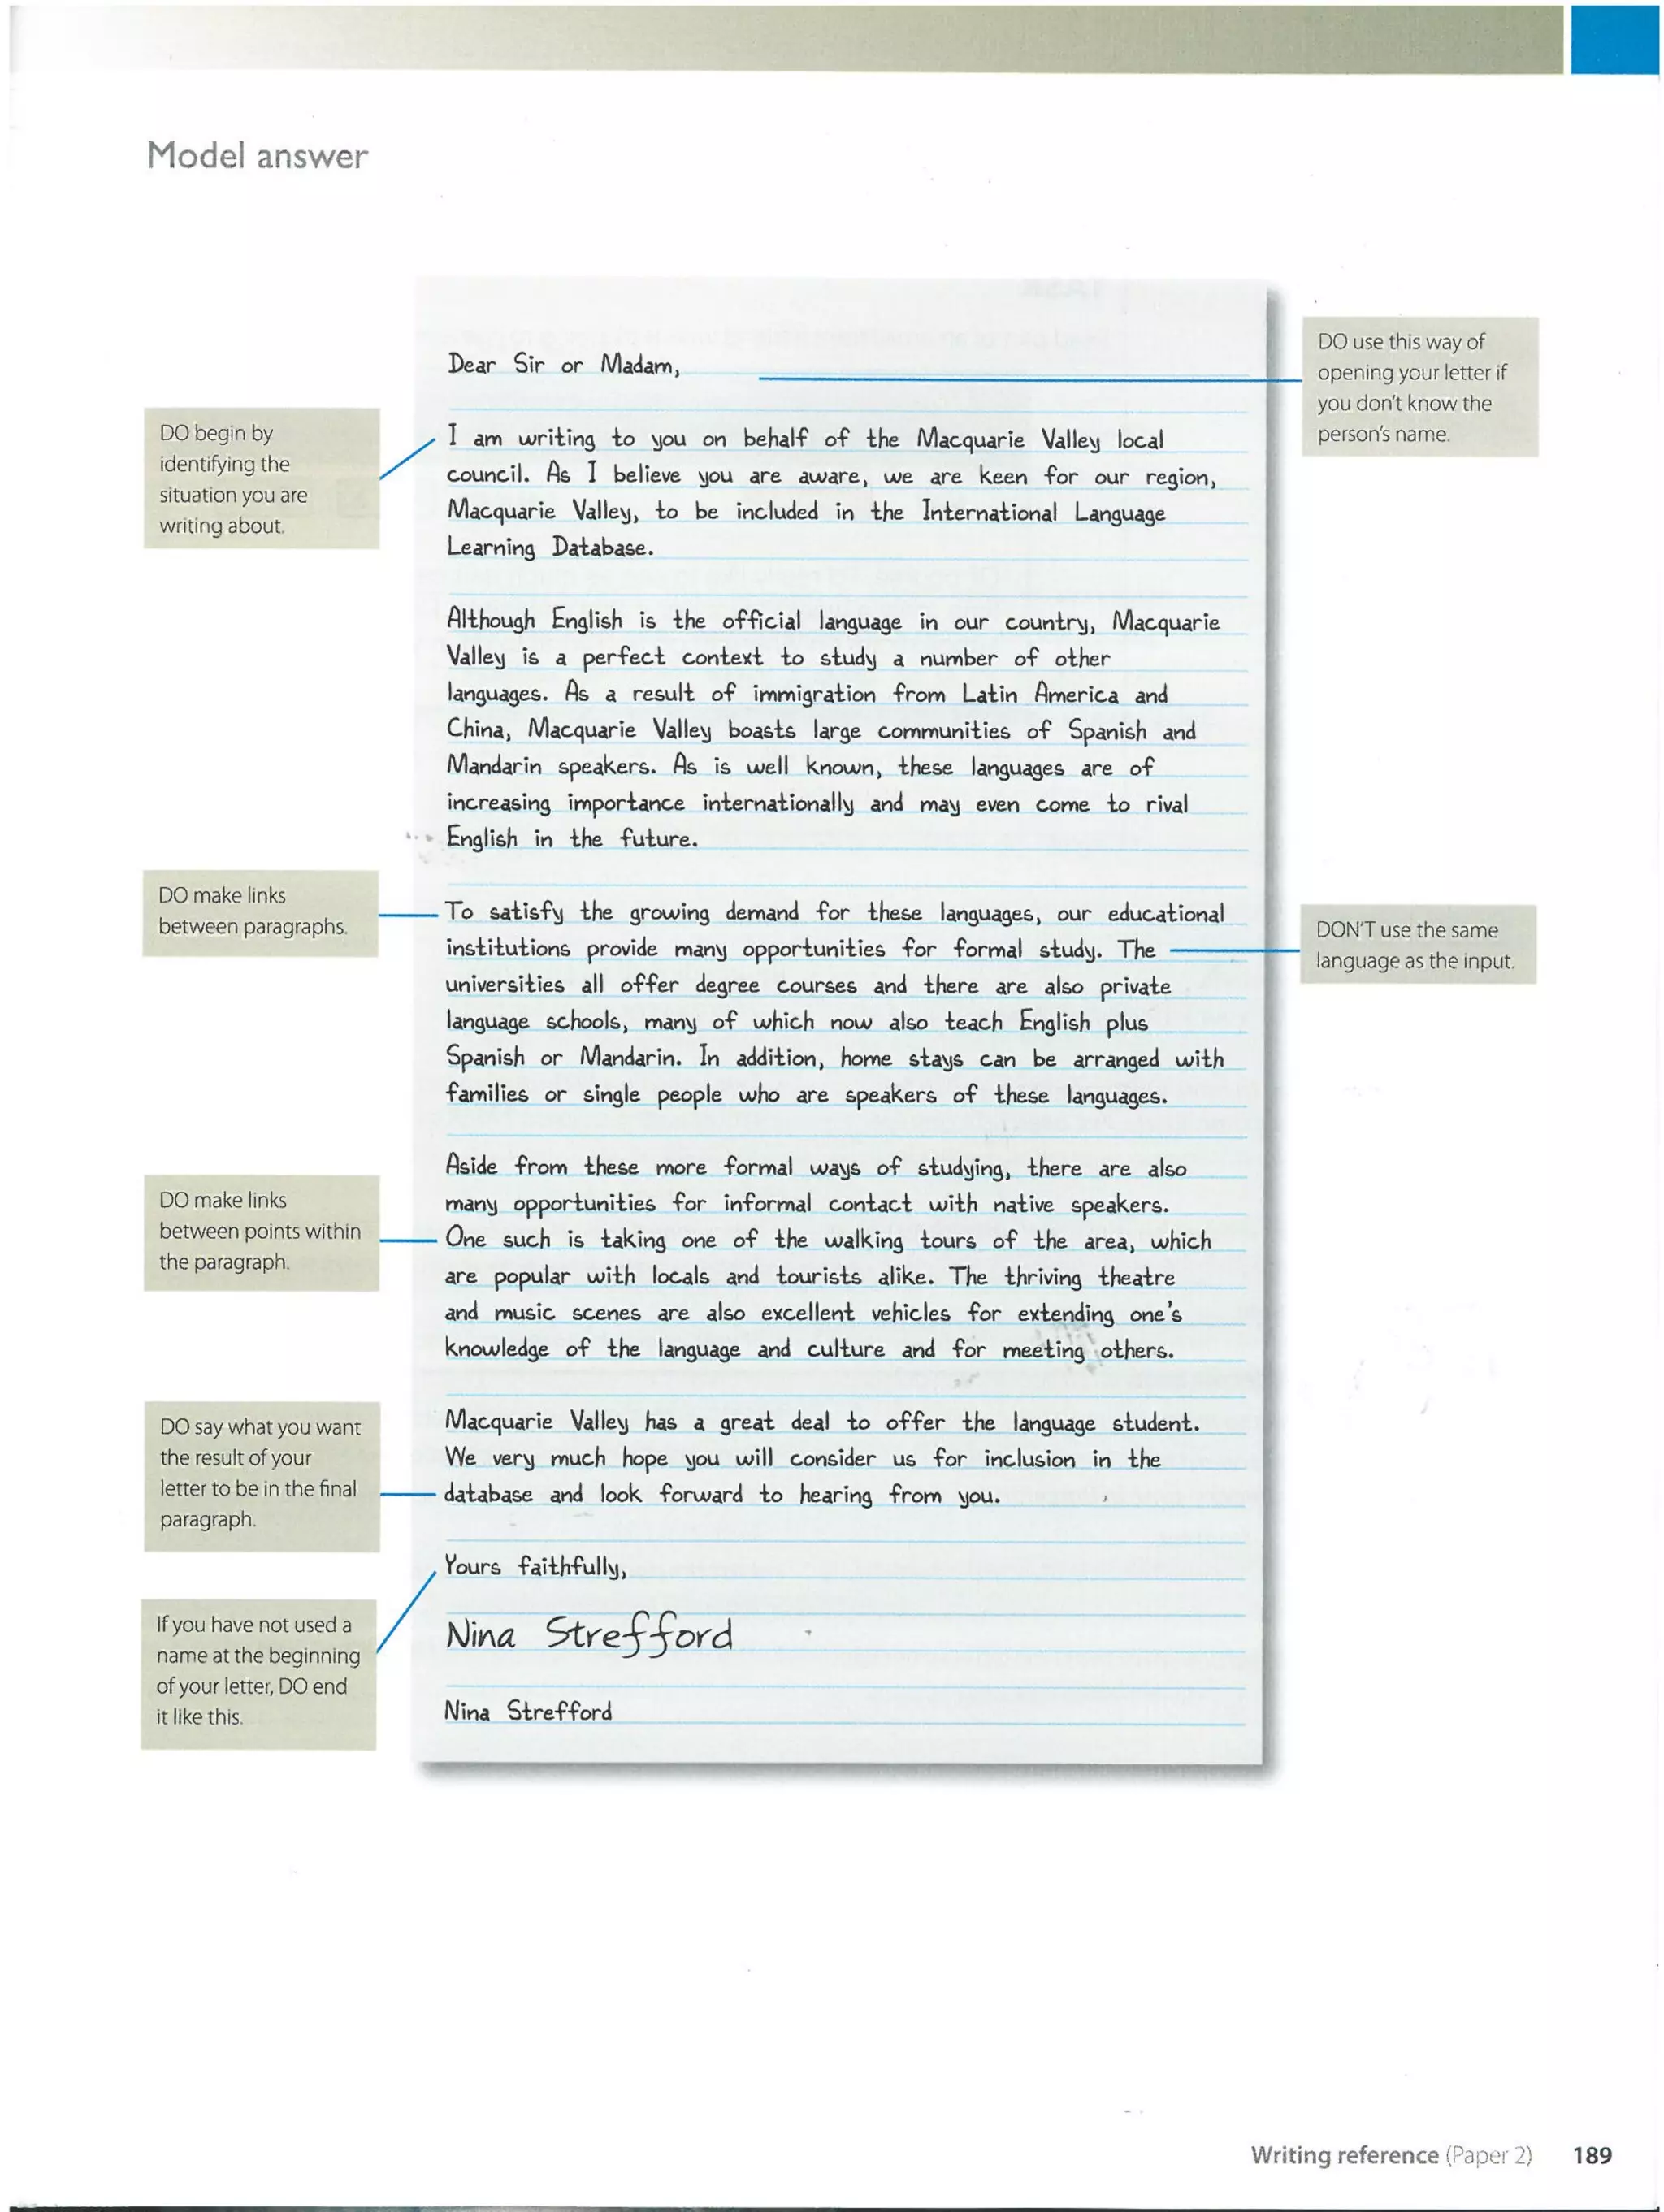 Model answer
Dear Sir or Madam,
DO use this way of
opening your letter if
you don't know the
person's name.
DO begin by
identifying the
situation you are
writing about.
I am writing to you on behalf of the Macquarie Valley local
council. As I believe you are aware, we are keen for our region,
Macquarie Valley, to be included in the International Language
Learning Database.
Although English is the official language in our country, Macquarie
Valley is a perfect context to study a number of other
languages. As a result of immigration from Latin America and
China, Macquarie Valley boasts large communities of Spanish and
Mandarin speakers. As is well known, these languages are of
increasing importance internationally and may even come to rival
English in the future.
DO make links
between paragraphs.
To satisfy the growing demand for these languages, our educational
institutions provide many opportunities for formal study. The
universities all offer degree courses and there are also private
language schools, many of which now also teach English plus
Spanish or Mandarin. In addition, home stays can be arranged with
families or single people who are speakers of these languages.
DON'T use the same
language as the input.
Aside from these more formal ways of studying, there are also
many opportunities for informal contact with native speakers.
One such is taking one of the walking tours of the area, which
are popular with locals and tourists alike. The thriving theatre
and music scenes are also excellent vehicles for extending one's
knowledge of the language and culture and for meeting others.
DO make links
between points within
the paragraph.
DO say what you want
the result of your
letter to be in the final
paragraph.
Macquarie Valley has a great deal to offer the language student.
We very much hope you will consider us for inclusion in the
database and look forward to hearing from you.
Yours faithfully,
If you have not used a
name at the beginning
of your letter, DO end
it like this.
Nina Strefford
Nina Strefford
Writing reference (Paper 2) 189